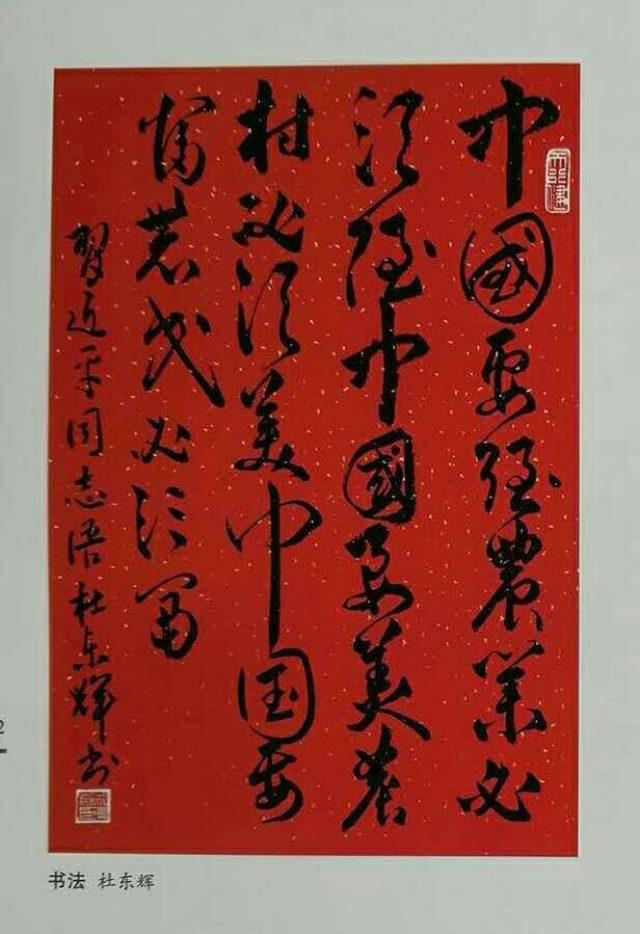 中國要强農業必
须强中國要美農
村必须美中国要
富农民必须富
習近平同志语杜东辉书
书法 杜东辉
2